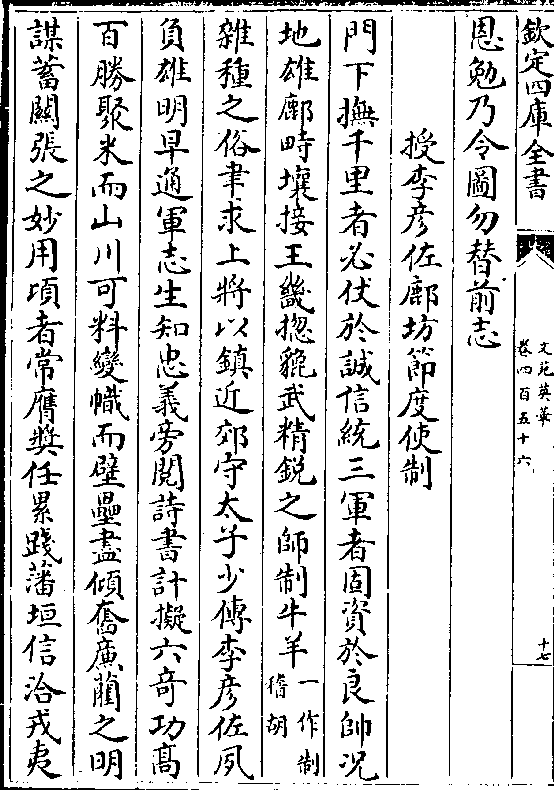 欽定四庫全書
文苑英華
卷四百五十六
十七
恩勉乃令圖勿替前志
授李彦佐鄜坊節度使制
門下撫千里者必伏於誠信統三軍者固資於良帥況
地雄鄜畤壤接王畿揔貔武精銳之師制牛羊一作制稽胡
雜種之俗聿求上將以鎮近郊守太子少傅李彦佐夙
負雄明早通軍志生知忠義旁閱詩書計擬六竒功髙
百勝聚米而山川可料變幟而壁壘盡傾奮廉藺之明
謀蓄關張之妙用項者常膺奬任累踐藩垣信洽戎夷